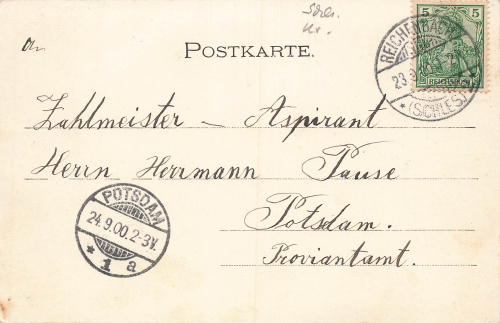 5 5
REICHENBACH
23.9
* (SCHLES.)
POSTKARTE.
Zahlmeister – Aspirant
Herrn Herrmann Pause
Potsdam.
Proviantamt.
POTSDAM
24.9.00.2-3V.
* 1 a